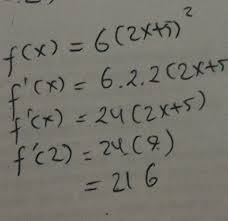 f(x) = 6(2x+5)²
f'(x) = 6.2.2(2x+5
f'(x) = 24(2x+5)
f'(2) = 24(9)
= 216